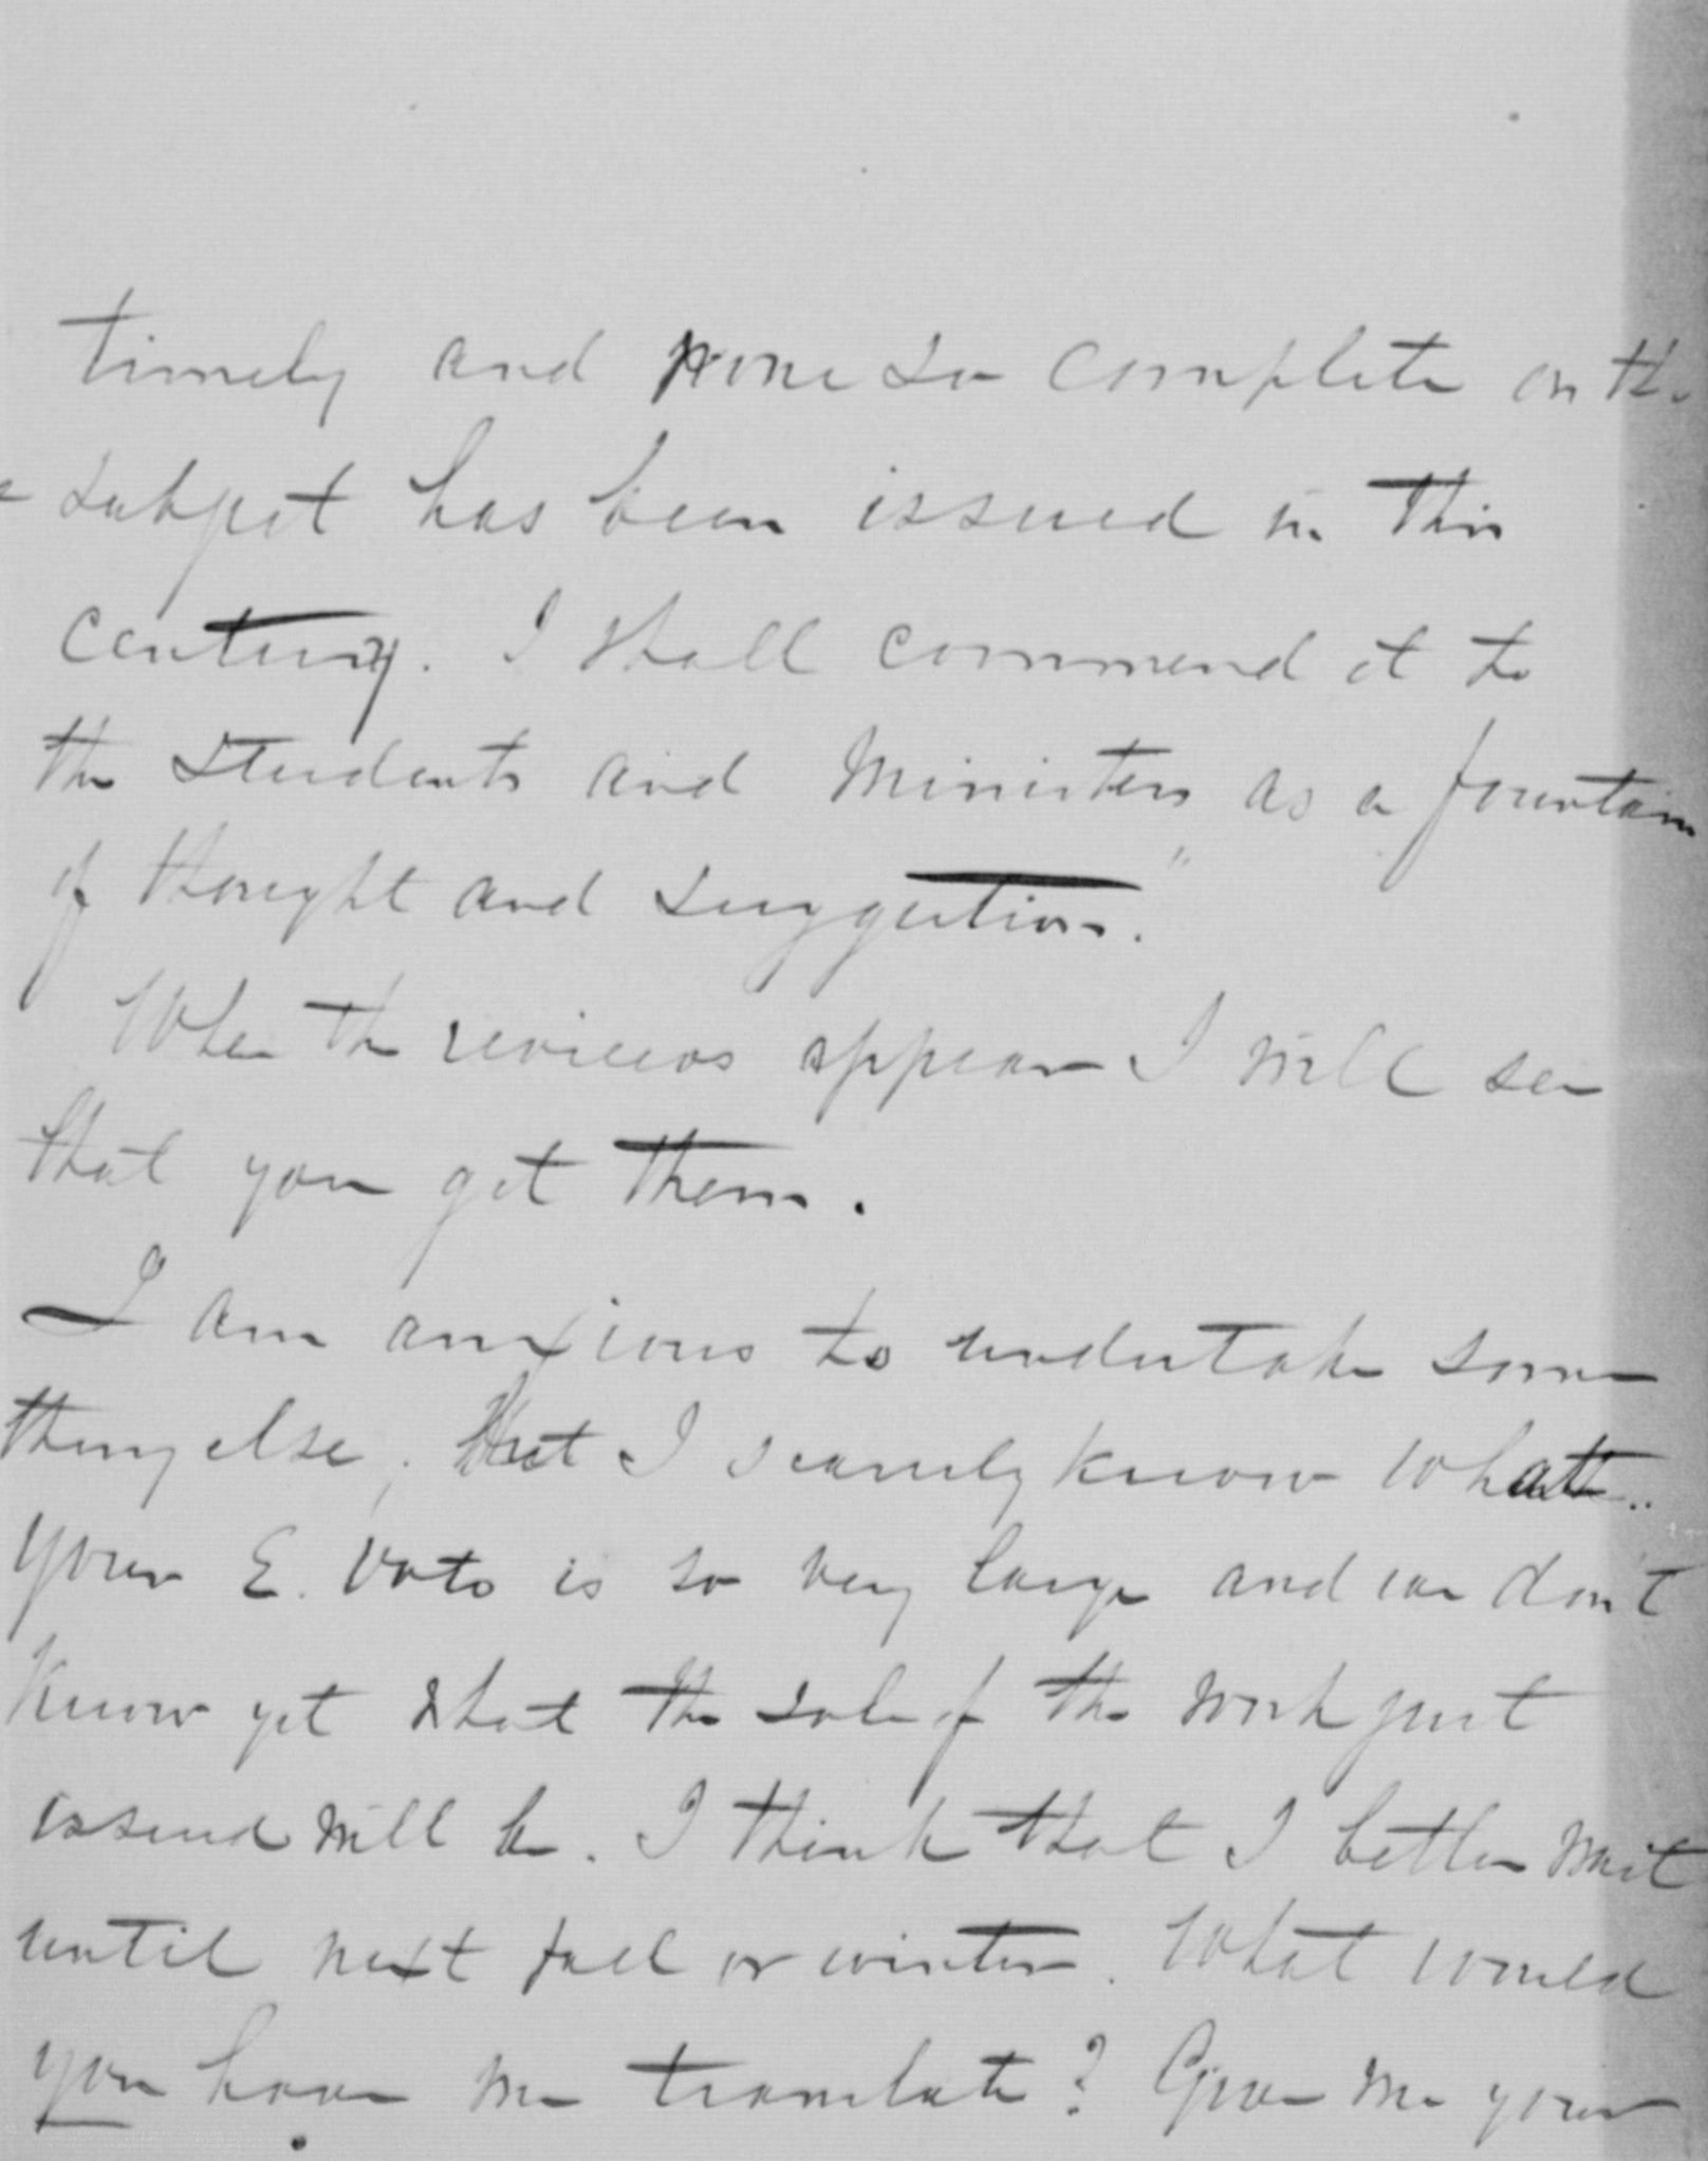 timely and none so complete on the
subject has been issued in this
century. I shall commend it to
the students and ministers as a fountain
of thought and suggestion."
When the reviews appear I will see
that you get them.
I am anxious to undertake some
thing else; But I scarcely know what..
Your E. Voto is so very large and we don't
know yet what the sale of the work just
issued will be. I think that I better wait
until next fall or winter. What would
you have me translate? Give me your